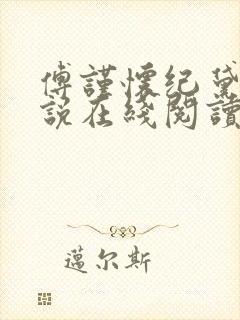 傅謹懷紀黛
說在綫閱讀
邁尔斯